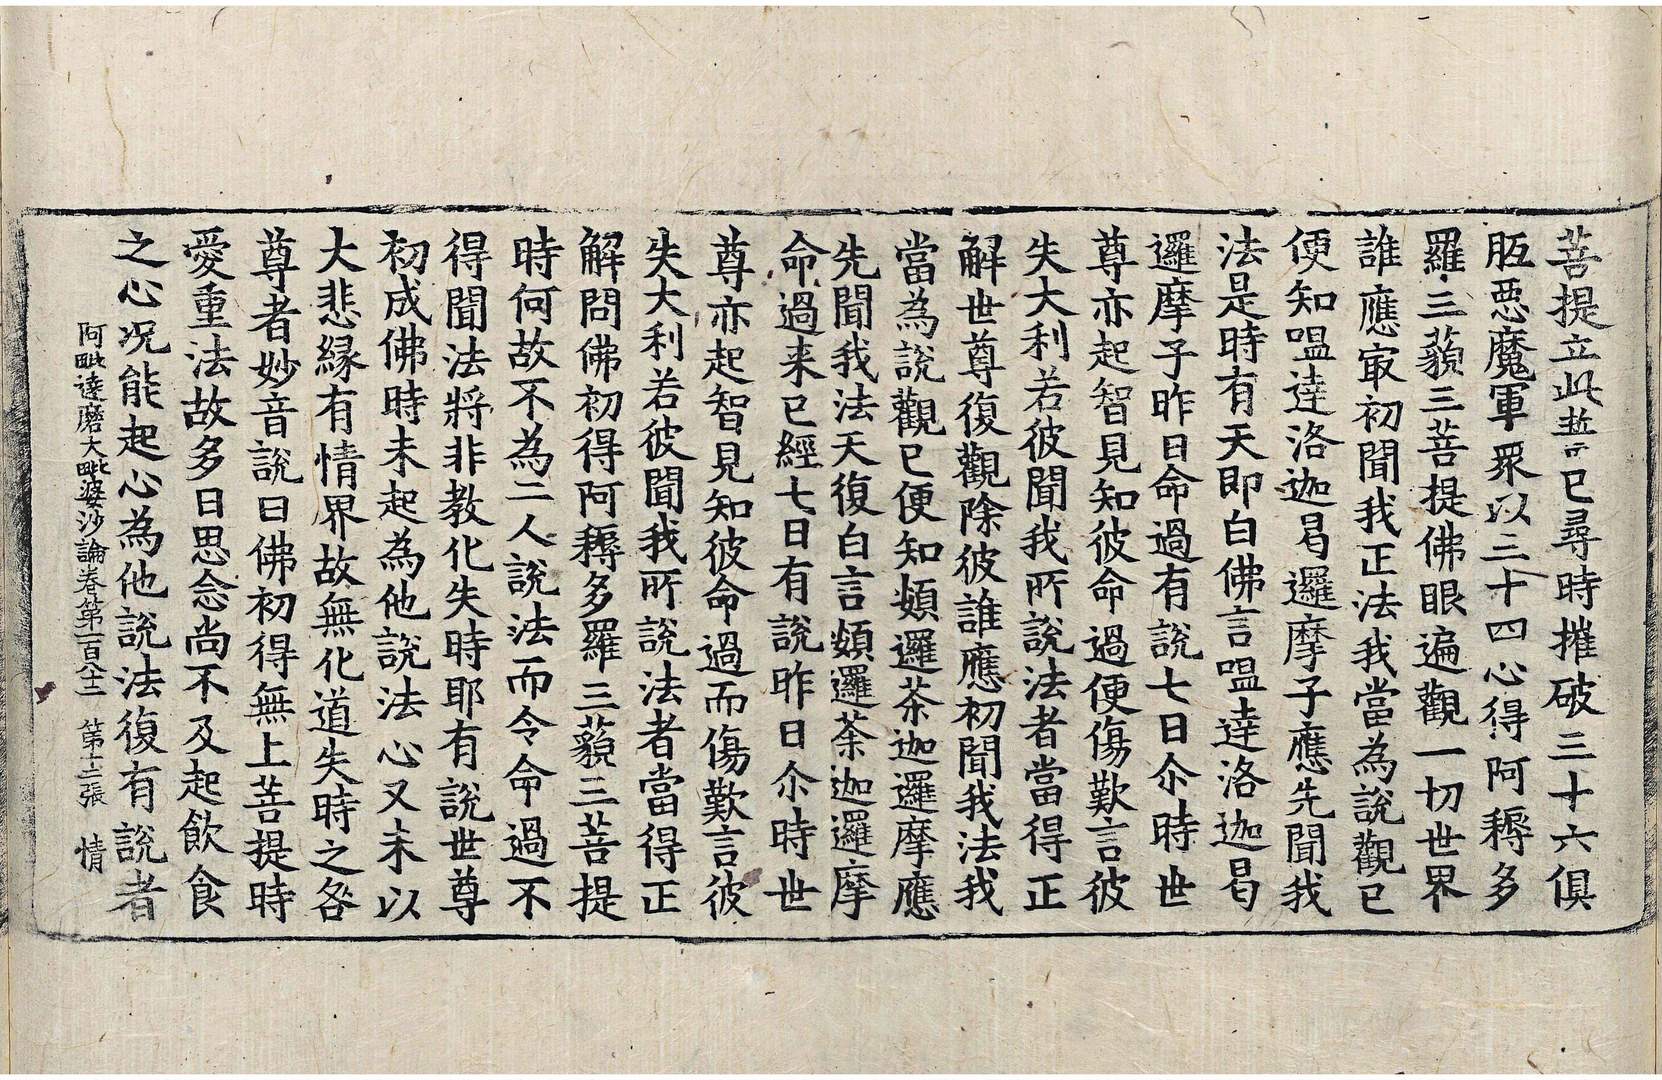 菩提立此誓已尋時摧破三十六俱
胝惡魔軍眾以三十四心得阿耨多
羅三藐三菩提佛眼遍觀一切世界
誰應㝡初聞我正法我當為說觀已
便知嗢達洛迦曷邏摩子應先聞我
法是時有天即白佛言嗢達洛迦曷
邏摩子昨日命過有說七日尒時世
尊亦起智見知彼命過便傷歎言彼
失大利若彼聞我所說法者當得正
解世尊復觀除彼誰應初聞我法我
當為說觀已便知頞邏茶迦邏摩應
先聞我法天復白言頞邏荼迦邏摩
命過来已經七日有說昨日尒時世
尊亦起智見知彼命過而傷歎言彼
失大利若彼聞我所說法者當得正
解問佛初得阿耨多羅三藐三菩提
時何故不為二人說法而令命過不
得聞法將非教化失時耶有說世尊
初成佛時未起為他說法心又未以
大悲緣有情界故無化道失時之咎
尊者妙音說曰佛初得無上菩提時
愛重法故多日思念尚不及起飲食
之心况能起心為他說法復有說者
阿毗達磨大毗婆沙論卷第一百八十二 第十三張 情